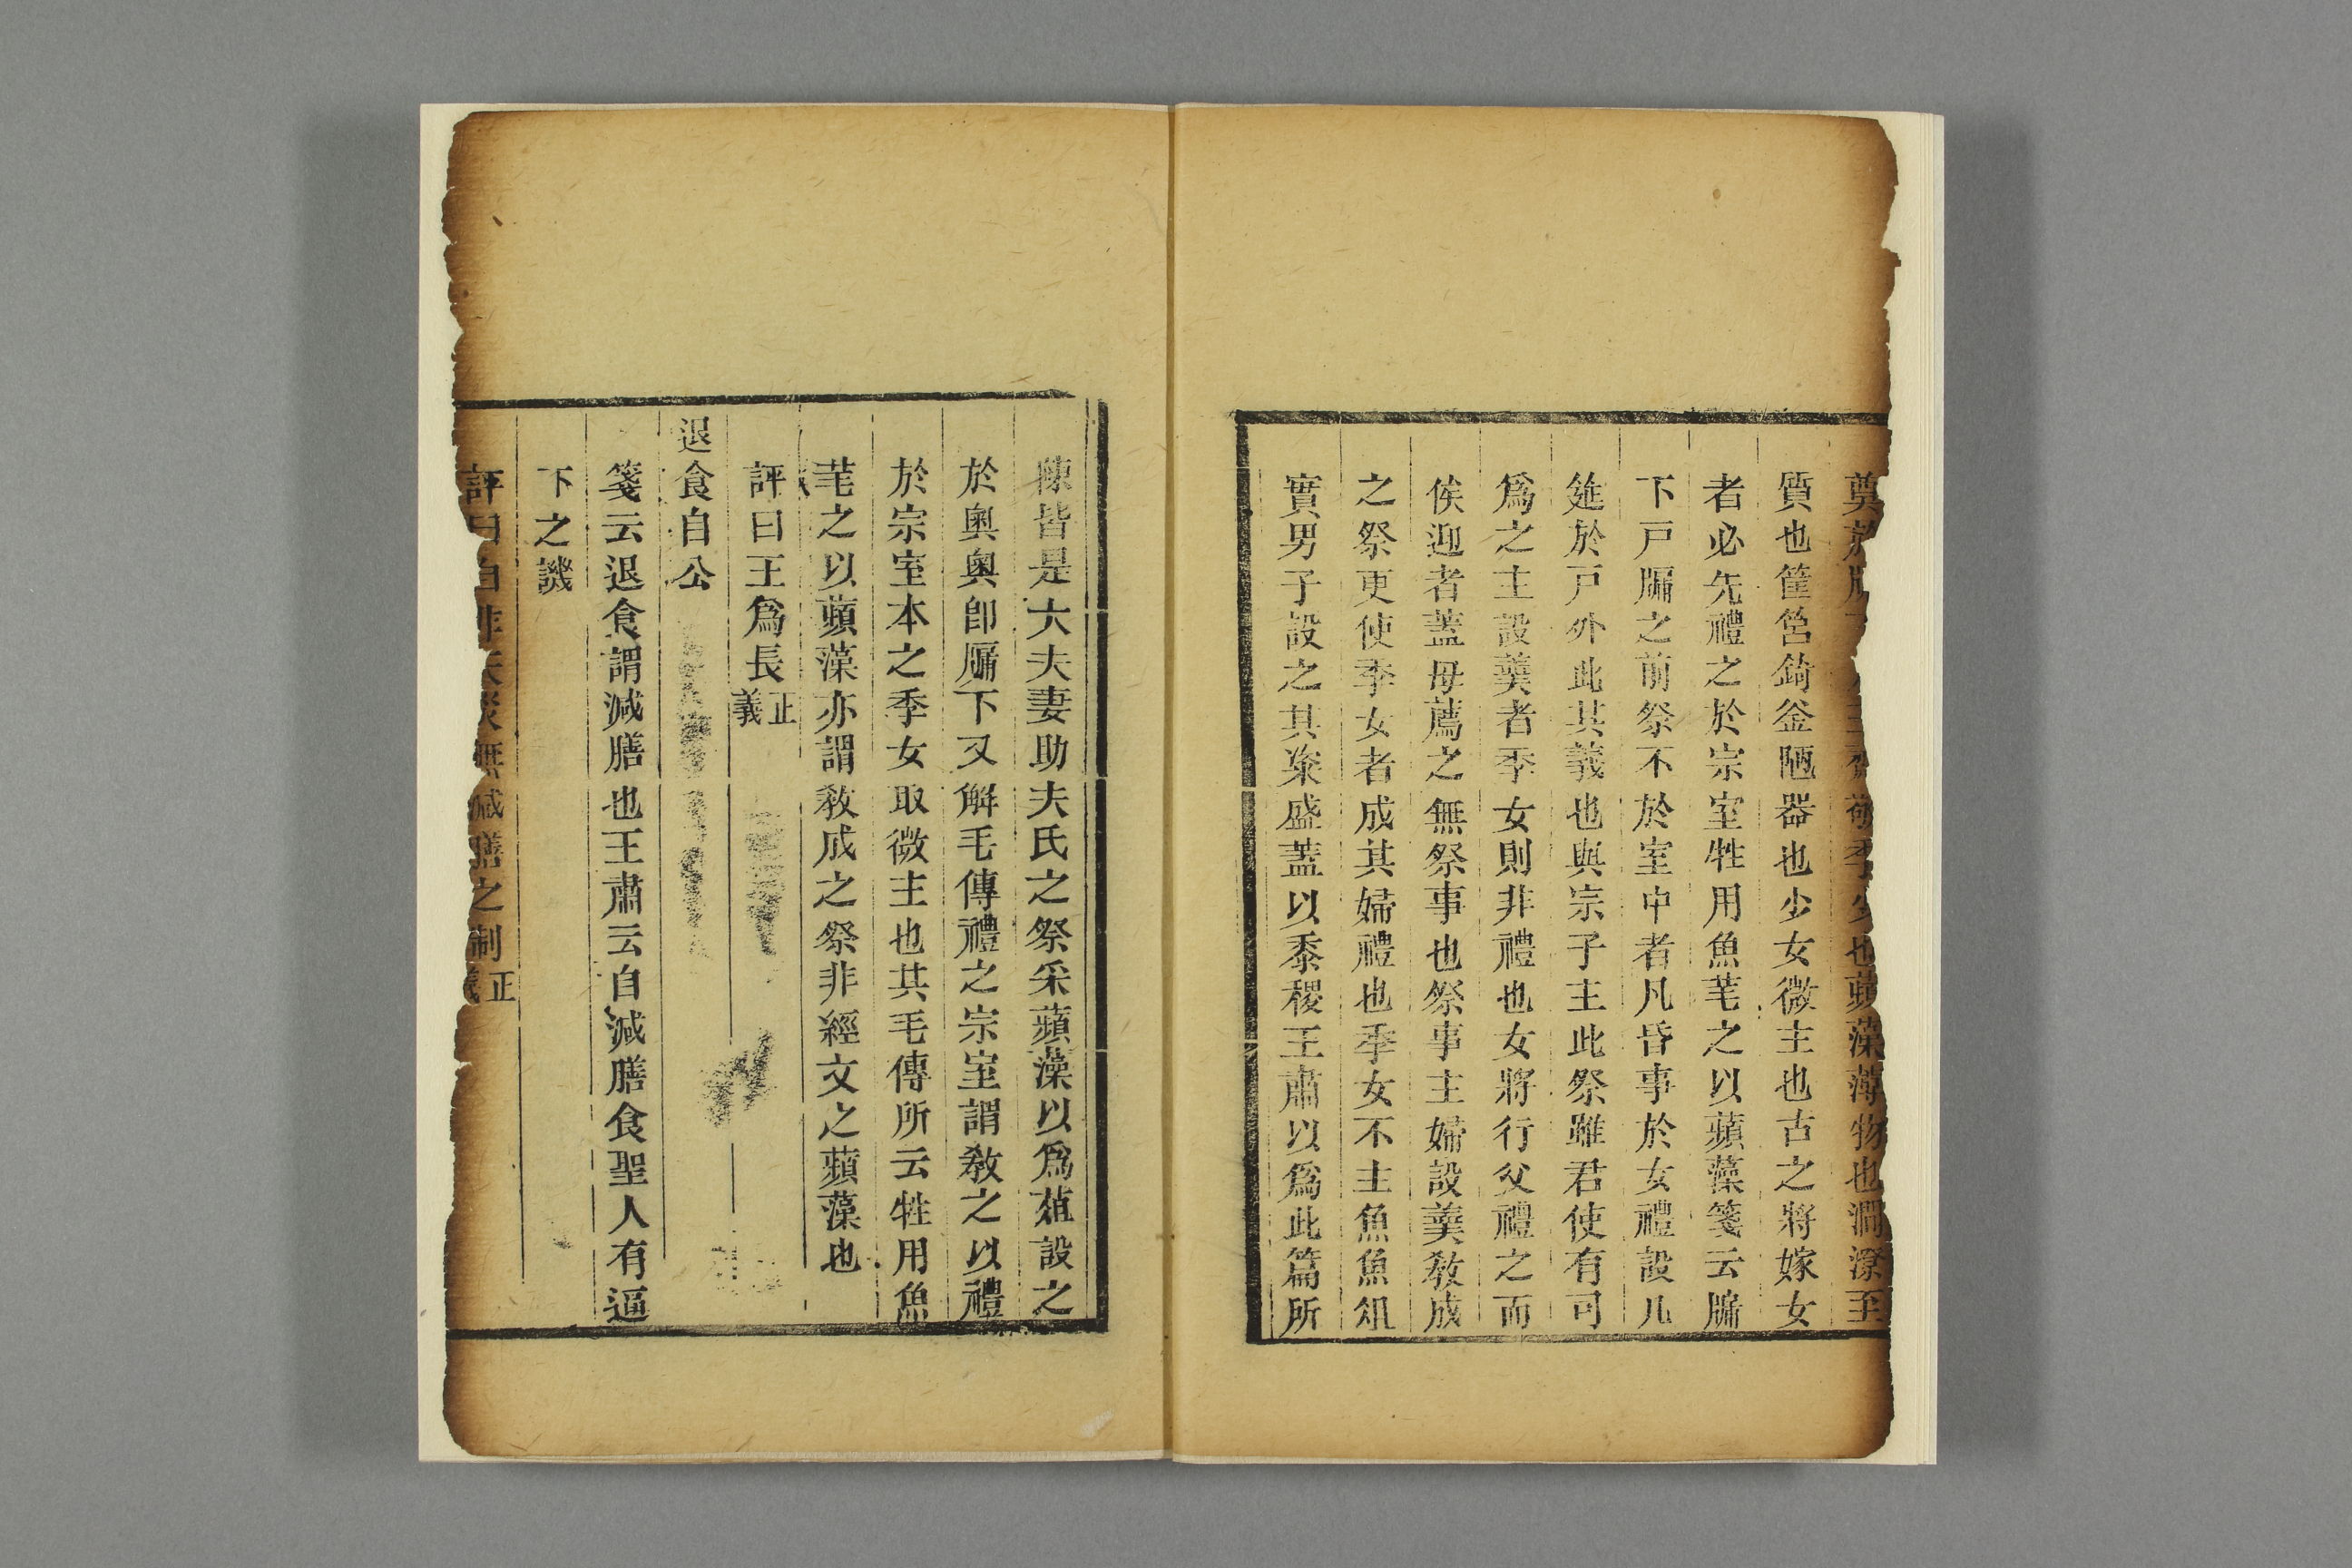 奠於牖下主齊敬季少也蘋藻薄物也澗潦至
質也筐筥錡釜陋器也少女微主也古之將嫁女
者必先禮之於宗室牲用魚芼之以蘋藻箋云牖
下戸牖之前祭不於室中者凡昏事於女禮設几
筵於戸外此其義也與宗子主此祭雖君使有司
爲之主設羮者季女則非禮也女將行父禮之而
俟迎者蓋母薦之無祭事也祭事主婦設羮敎成
之祭更使季女者成其婦禮也季女不主魚魚俎
實男子設之其粢盛蓋以黍稷王肅以爲此篇所
陳皆是大夫妻助夫氏之祭采蘋藻以爲葅設之
於奥奥卽牖下又解毛傳禮之宗室謂敎之以禮
於宗室本之季女取微主也其毛傳所云牲用魚
芼之以蘋藻亦謂敎成之祭非經文之蘋藻也
評曰王爲長正義
退食自公
箋云退食謂減膳也王肅云自減膳食聖人有逼
下之譏
評曰自非天災無減膳之制正義